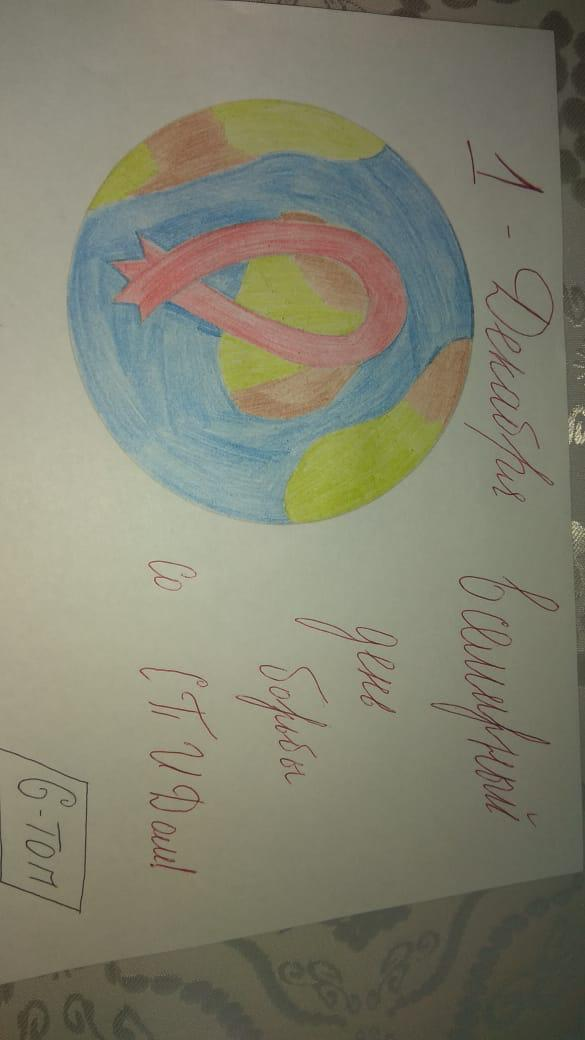 1 - Декабря всемирный
день
борьбы
со СПИДом!
6-ТОП